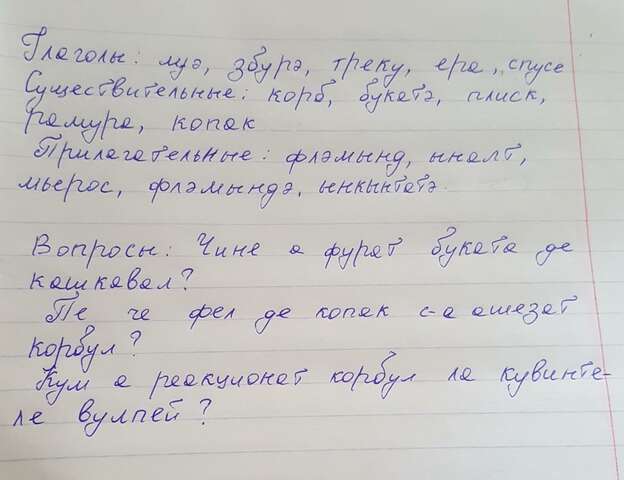 Глаголы: луэ, збурэ, треку, ера, спусе
Существительные: корб, букатэ, плиск,
рамура, копак
Прилагательные: флэмынд, ыналт,
мьерос, флэмындэ, ынкынтатэ.
Вопросы: Чине а фурат буката де
кашкавал?
Пе че фел де копак с-а ашезат
корбул?
Кум а реакционат корбул ла кувинте-
ле вулпей?